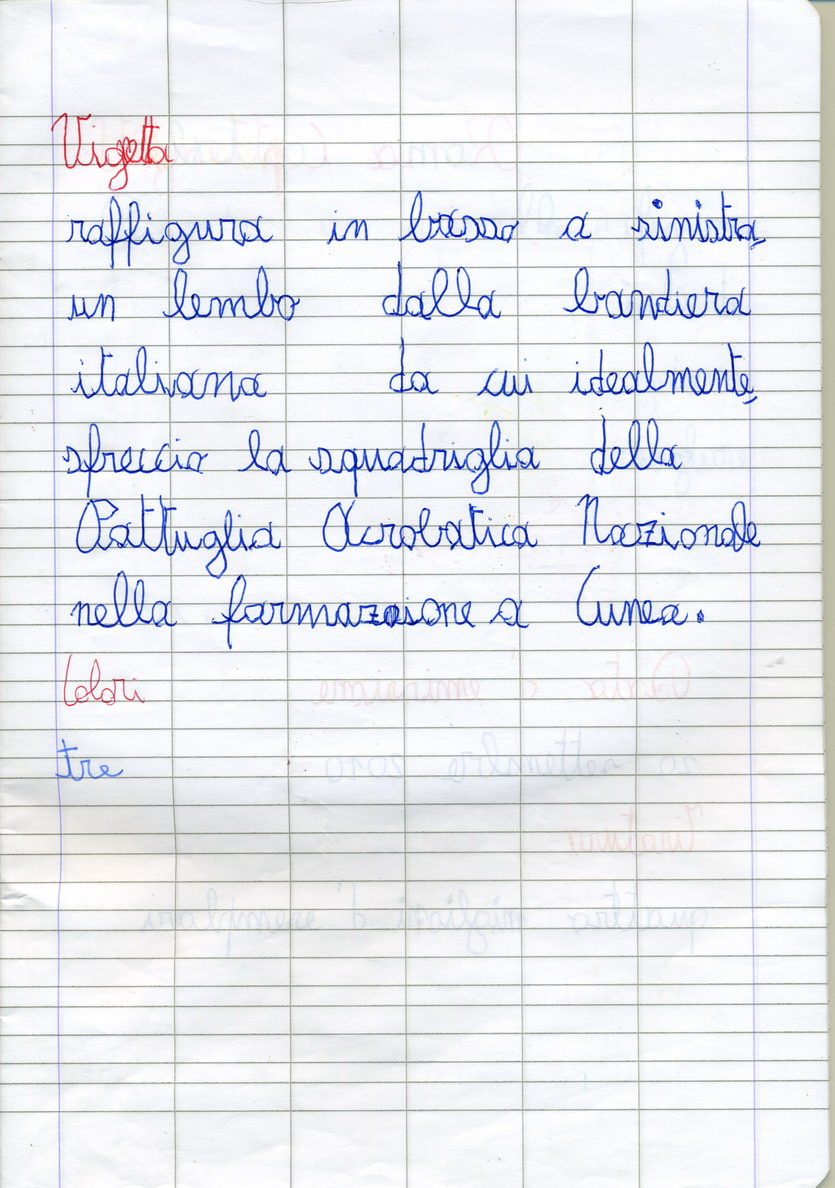 Vigetta
raffigura in basso a sinistra
un lembo dalla bandiera
italiana da cui idealmente
sfreccia la squadriglia della
Pattuglia Acrobatica Nazionale
nella formazione a Cunea.
Colori
tre